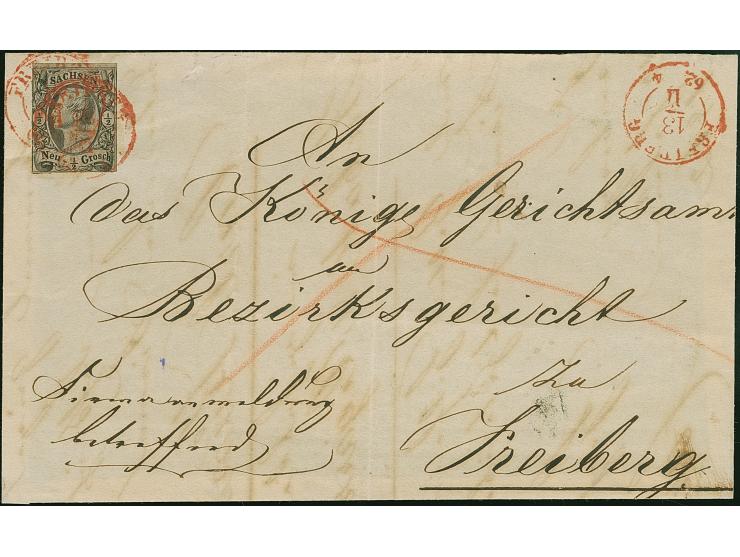 SACHSEN
1/2 1/2
Neu 1/2 Grosch
FREIBERG
13
II
62
4
An
das Königl Gerichtsamt
am
Bezirksgericht
zu
Freiberg
Firmaanmeldung
betreffend